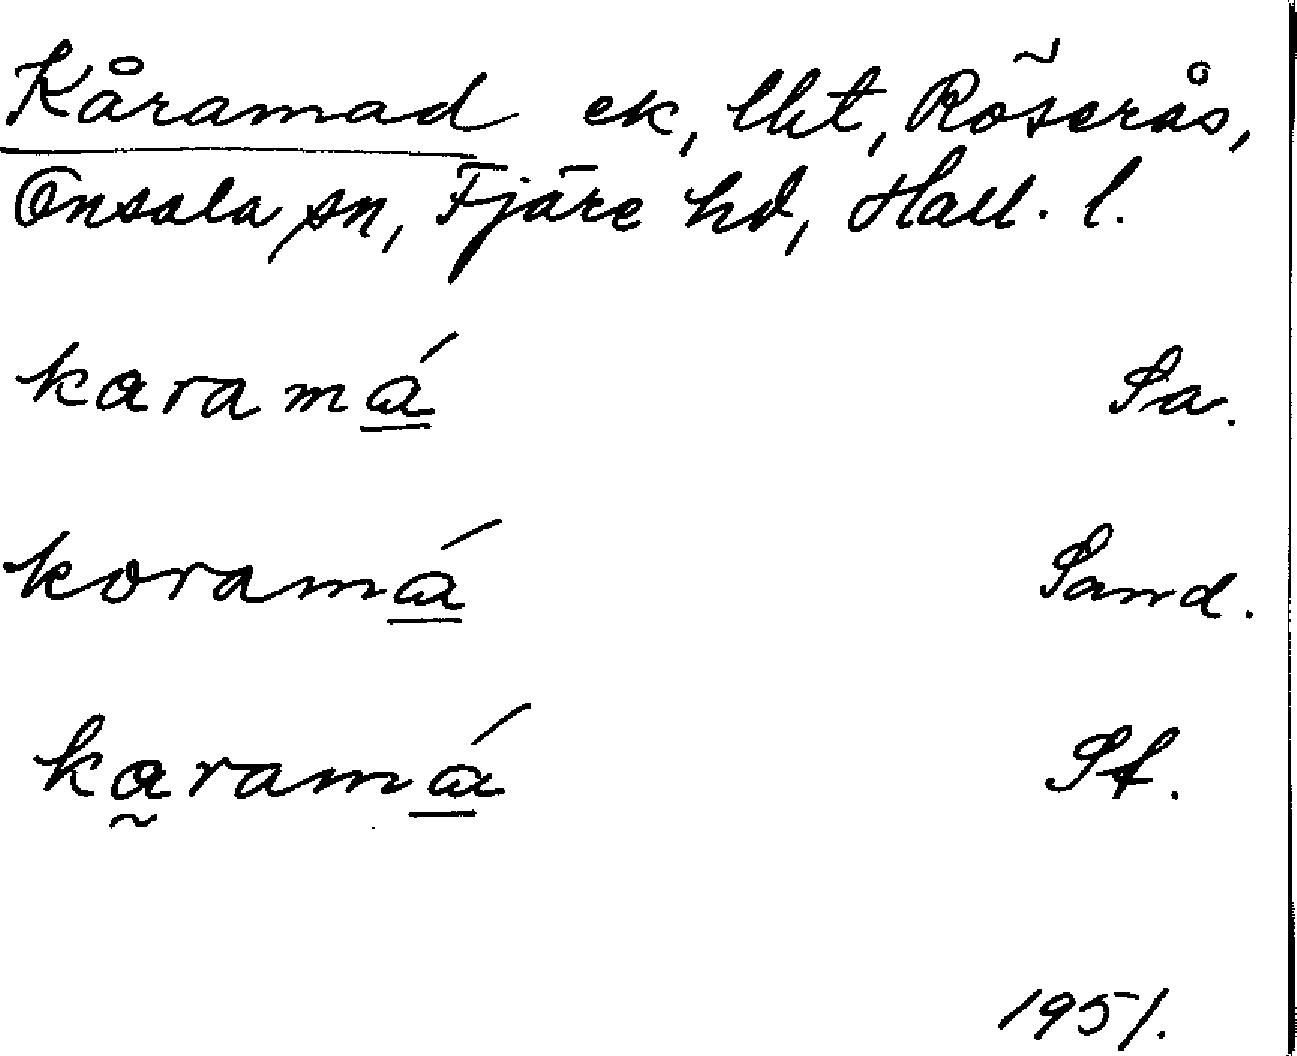 Kåramad ek, lht, Röserås,
Onsala sn, Fjäre hd, Hall. l.
karamá Sa.
koramá Sand.
ka̰ramá Sf.
1951.